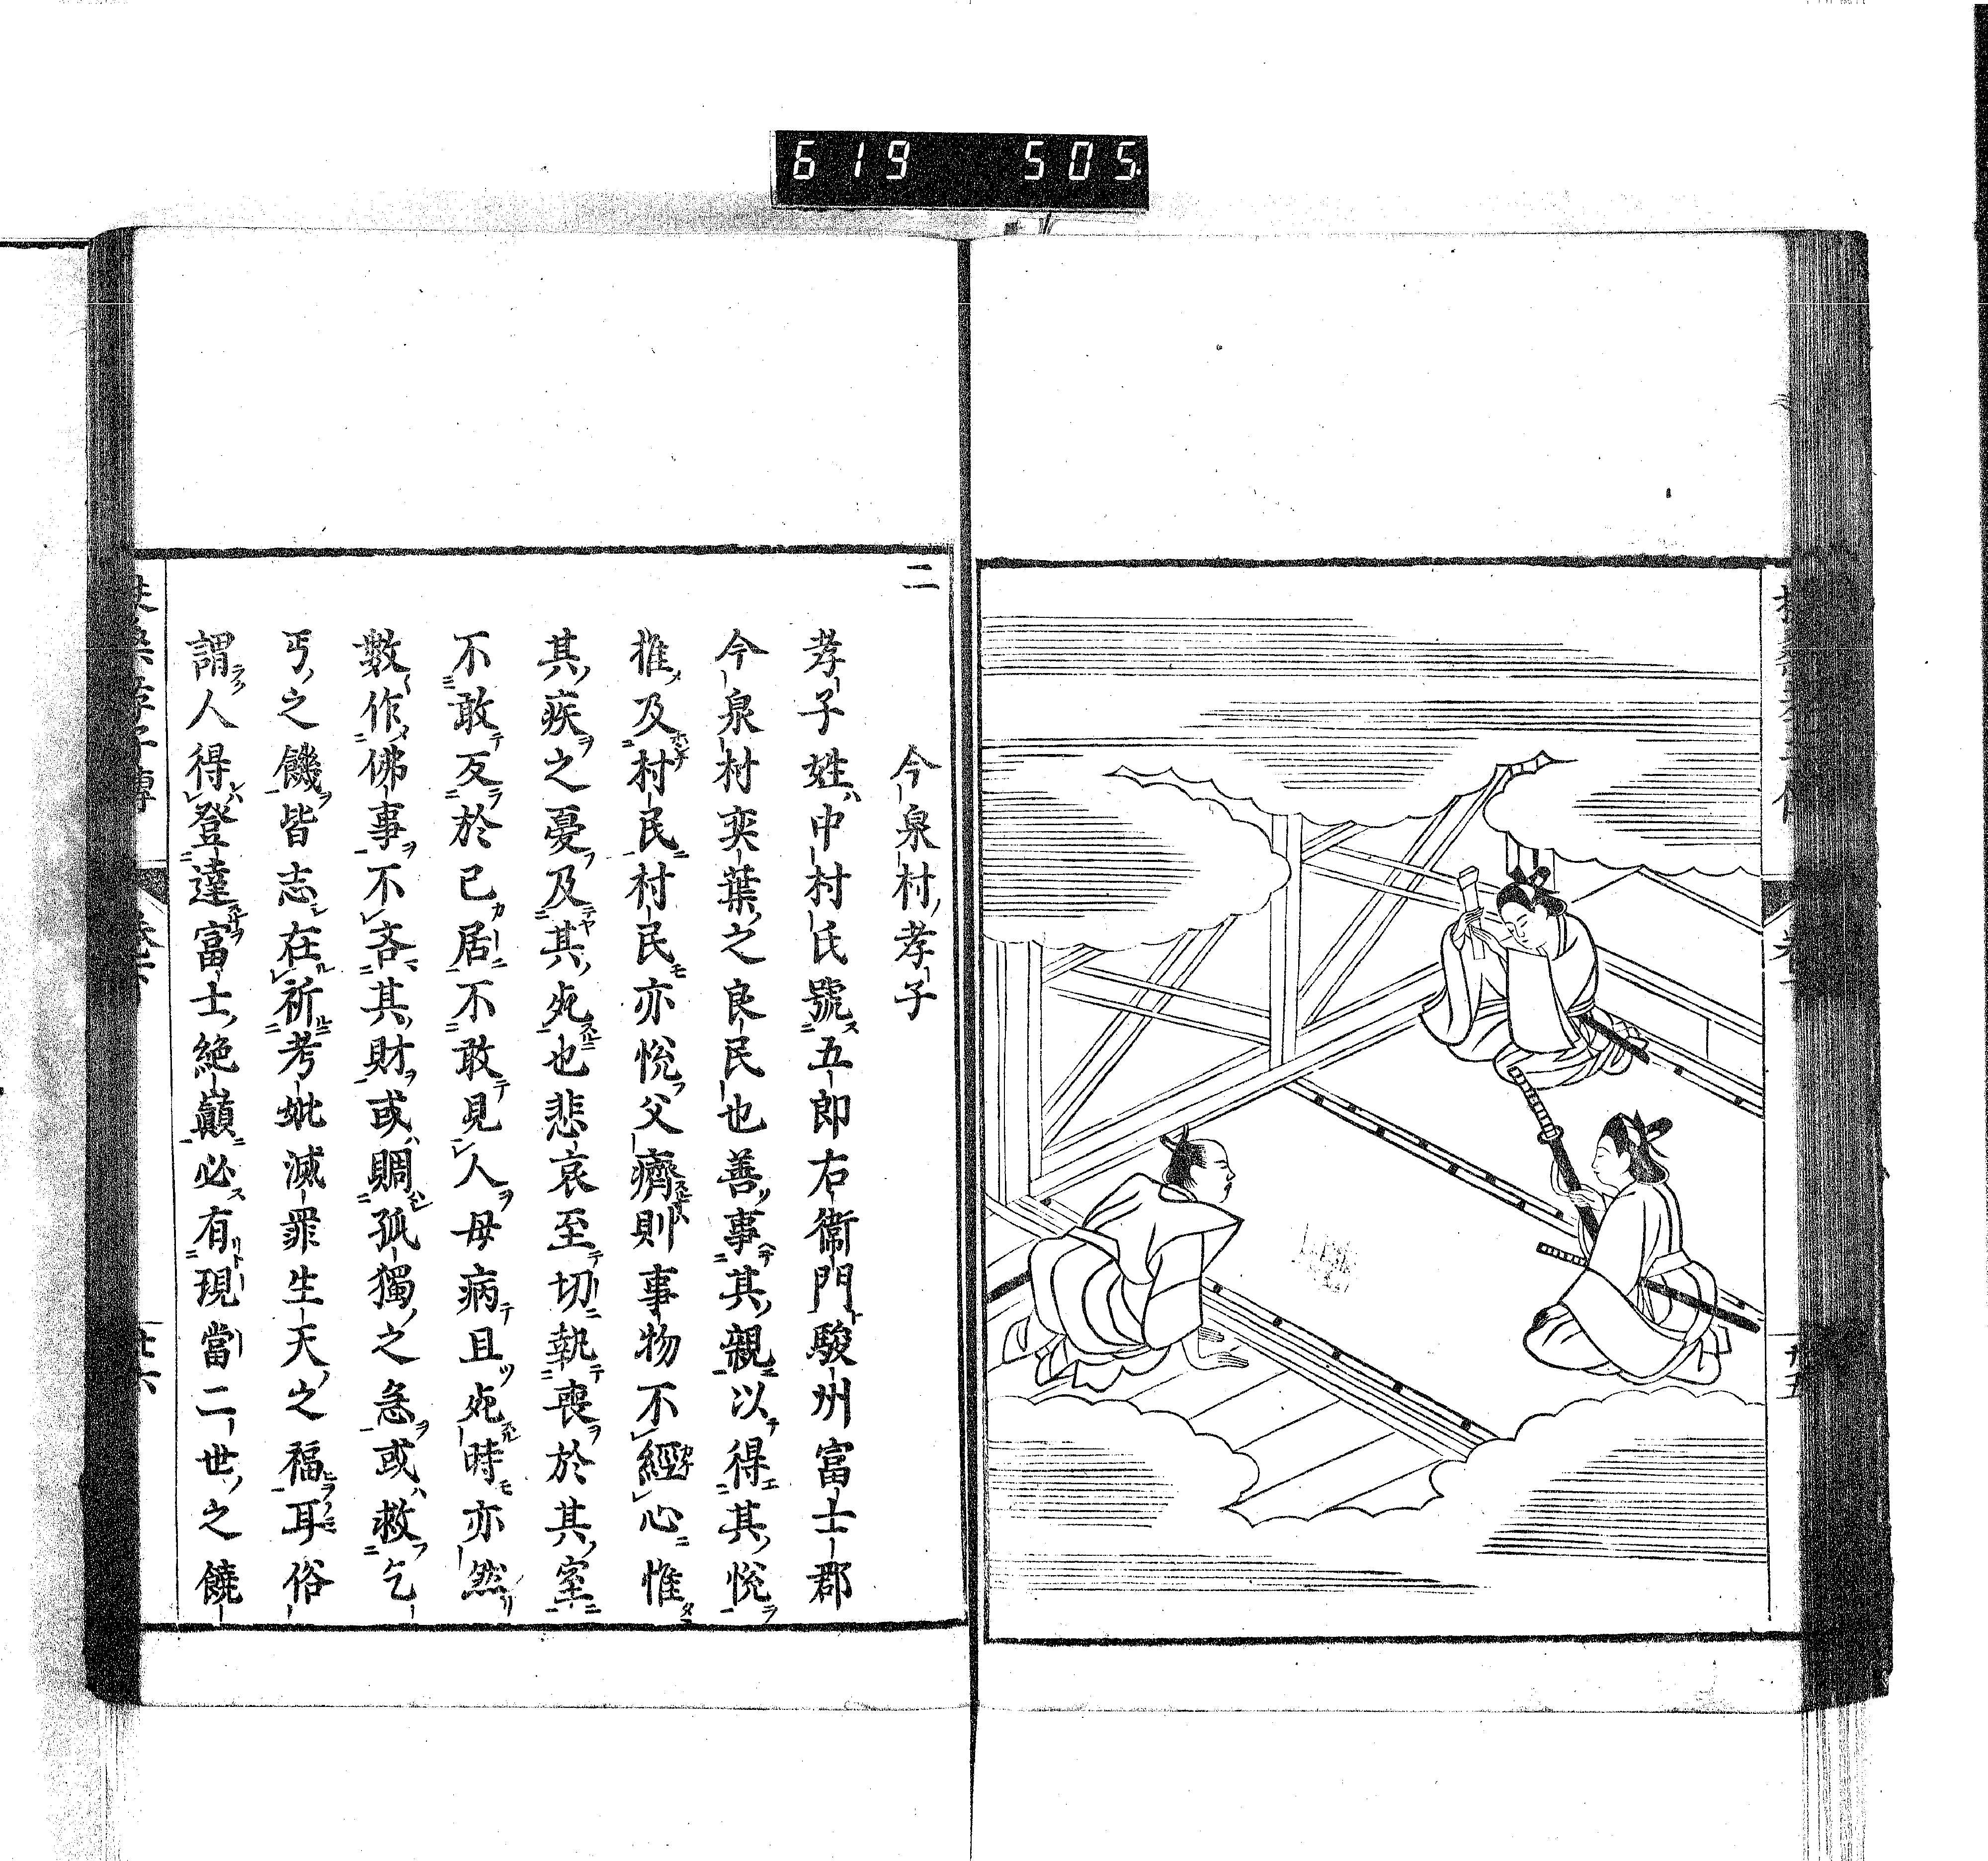 619 505
二
今泉村孝子
孝子姓中村氏號五郎右衞門駿州富士郡
今泉村奕葉之良民也善事其親以得其悅
推及村民村民亦悅父癠則事物不經心惟
其疾之憂及其死也悲哀至切執喪於其室
不敢反於己居不敢見人母病且死時亦然
數作佛事不吝其財或賙孤獨之急或救乞
丐之饑皆志在祈考妣滅罪生天之福耳俗
謂人得登達富士絶巓必有現當二世之饒